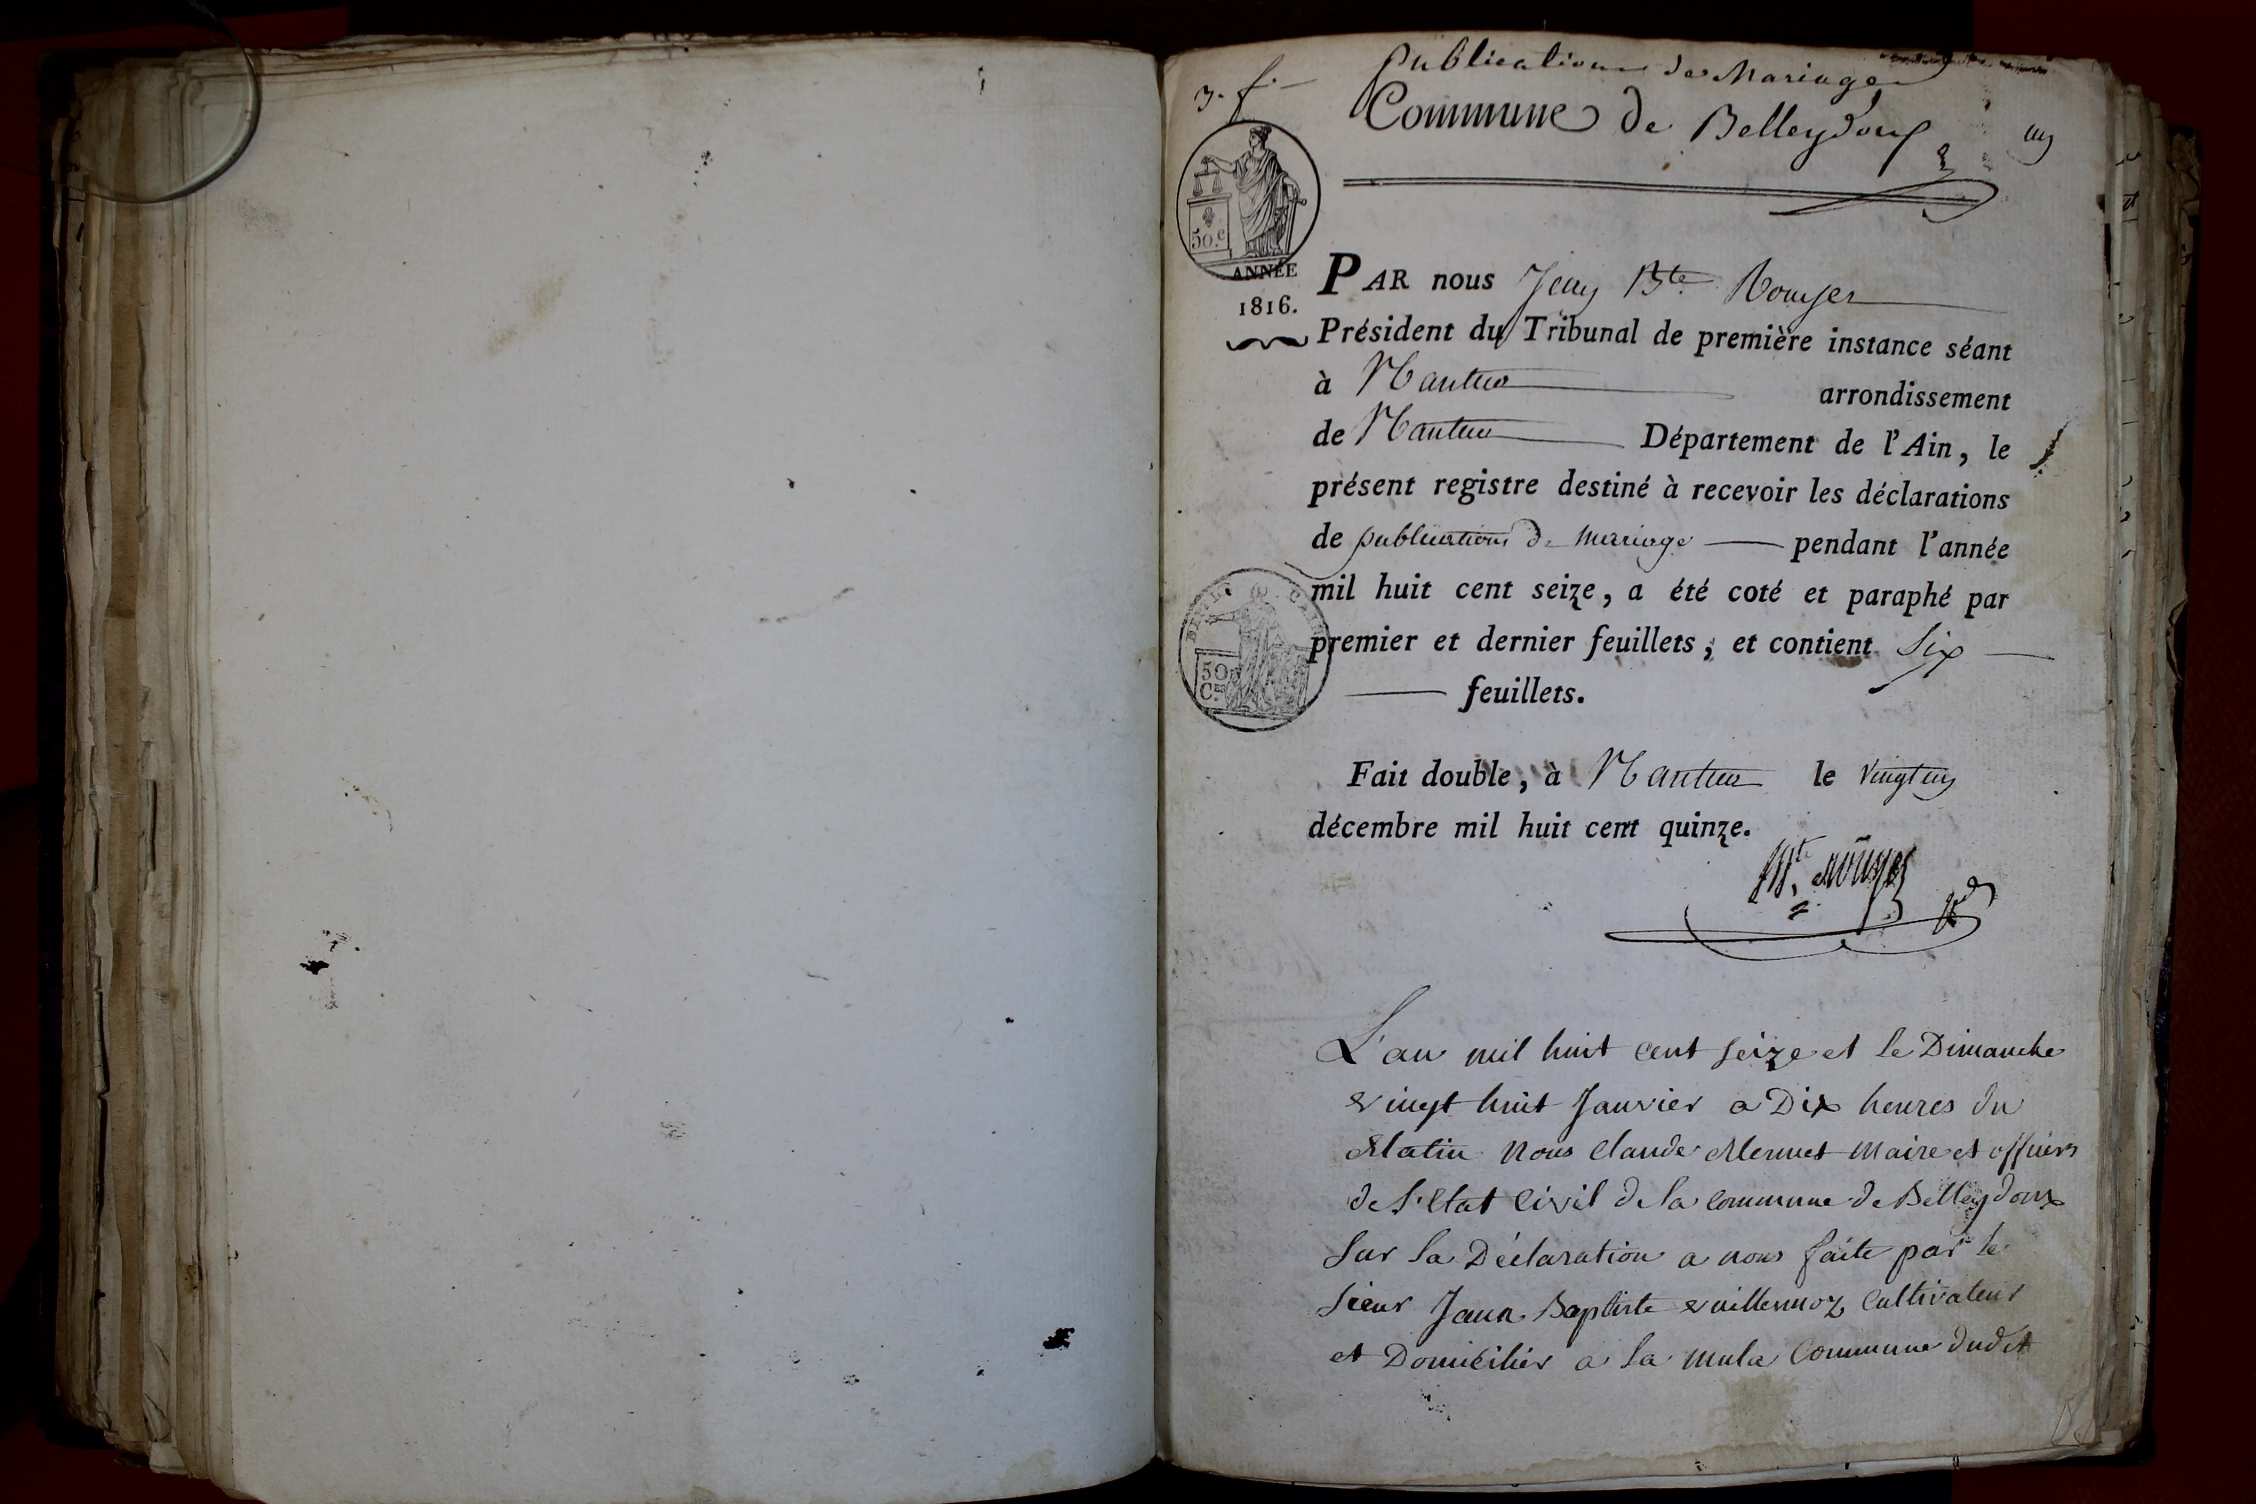 3. f.
publications de Mariage
Commune de Belleydoux
un
50.c
ANNÉE
1816.
PAR nous Jean Bte Rouyer
Président du Tribunal de première instance séant
à Nantua arrondissement
de Nantua Département de l'Ain, le
présent registre destiné à recevoir les déclarations
de publications de mariage pendant l'année
mil huit cent seize, a été coté et paraphé par
premier et dernier feuillets; et contient Six
feuillets.
50
Ces
Fait double, à Nantua le vingt un
décembre mil huit cent quinze.
Bte Rouyer
L'an mil huit cent seize et le Dimanche
vingt huit Janvier a Dix heures du
Matin Nous Claude Mermet Maire et officier
de l'etat civil de la commune de Belleydoux
sur la Déclaration a nous faite par le
sieur Jean Baptiste vuillermoz Cultivateur
et Domicilier a la mula Commune dudit